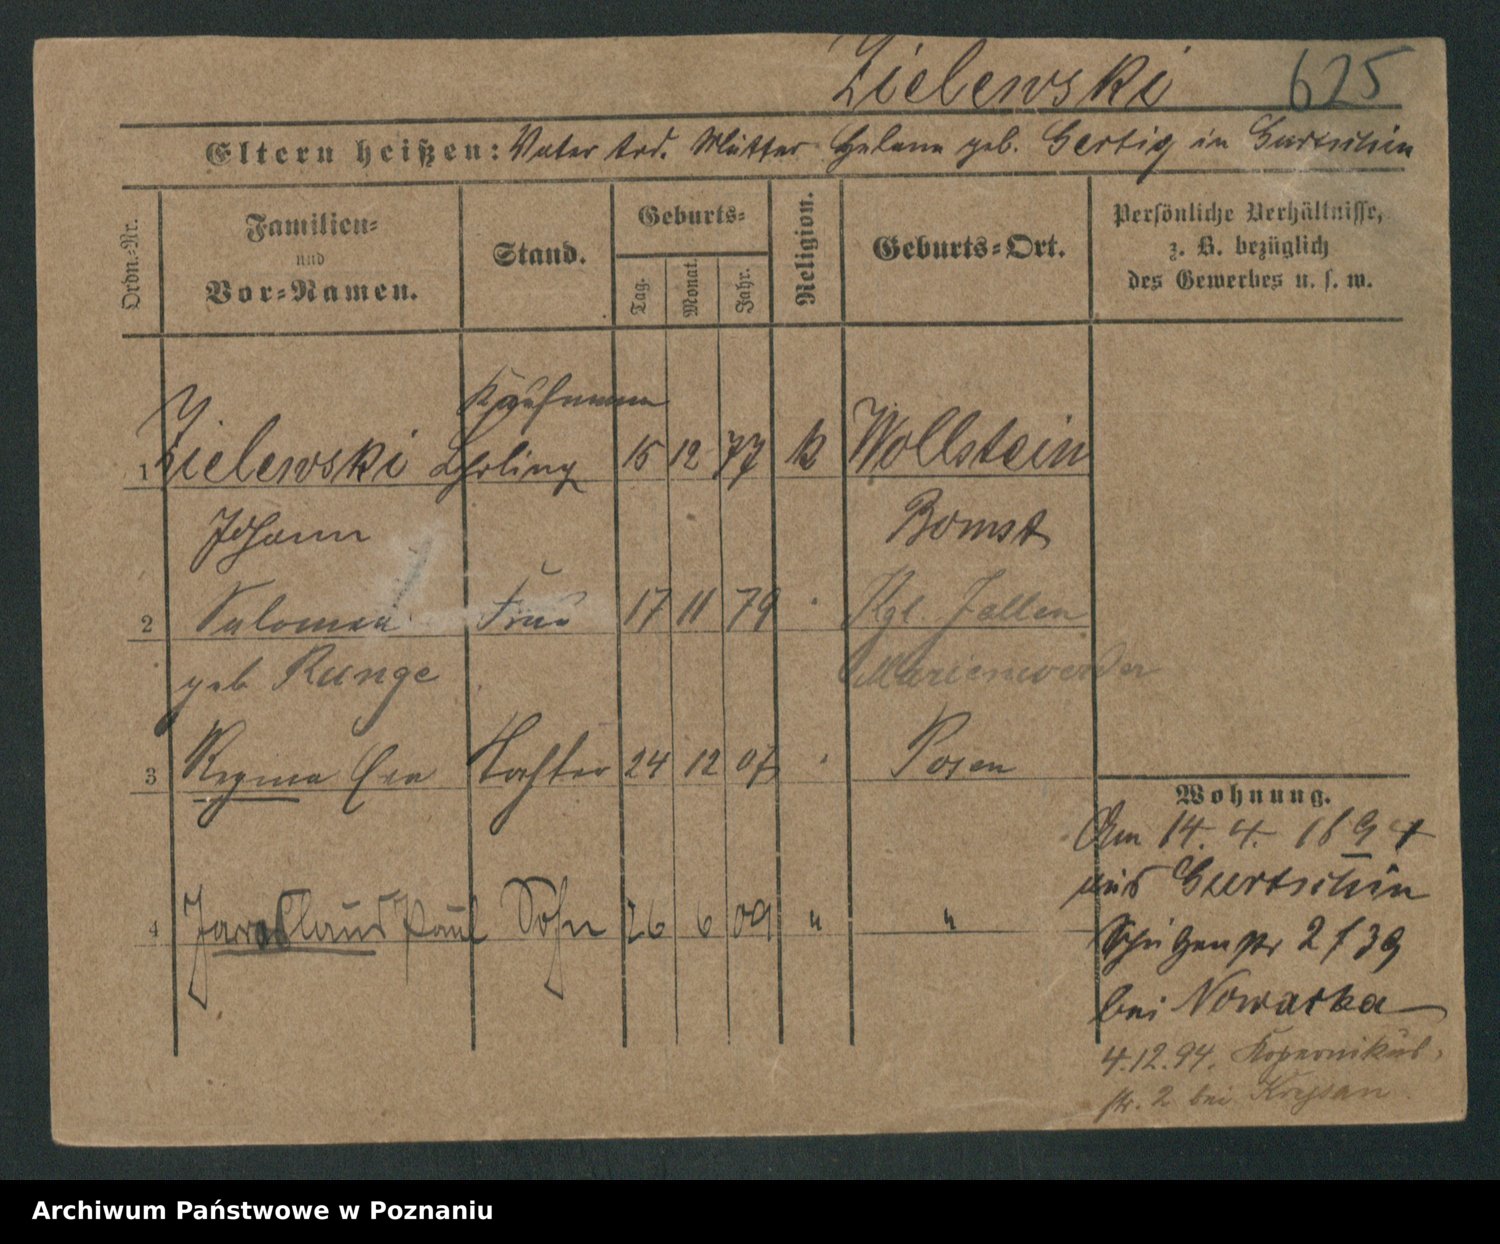 Zielewski 625
Eltern heißen: Vater tod. Mutter Helene geb. Gertig in Gurtschin
Ordn.-Nr.
Familien-
und
Vor-Namen.
Stand.
Geburts-
Tag.
Monat.
Jahr.
Religion.
Geburts-Ort.
Persönliche Verhältnisse,
z. B. bezüglich
des Gewerbes u. s. w.
Kaufmann
1 Zielewski Lehrling 15 12 77 k Wollstein
Johann Bomst
2 Salomea Frau 17 11 79 " Kgl.
geb Runge Marienwerder
3 Regina Eva Tochter 24 12 07 " Posen
4 Jaroslaus Paul Sohn 26 6 09 " "
Wohnung.
Am 14. 4. 1894
aus Gurtschin
Schützenstr 2 / 39
bei Nowacka
4.12.94. Kopernikus-
str. 2 bei Krysan
Archiwum Państwowe w Poznaniu